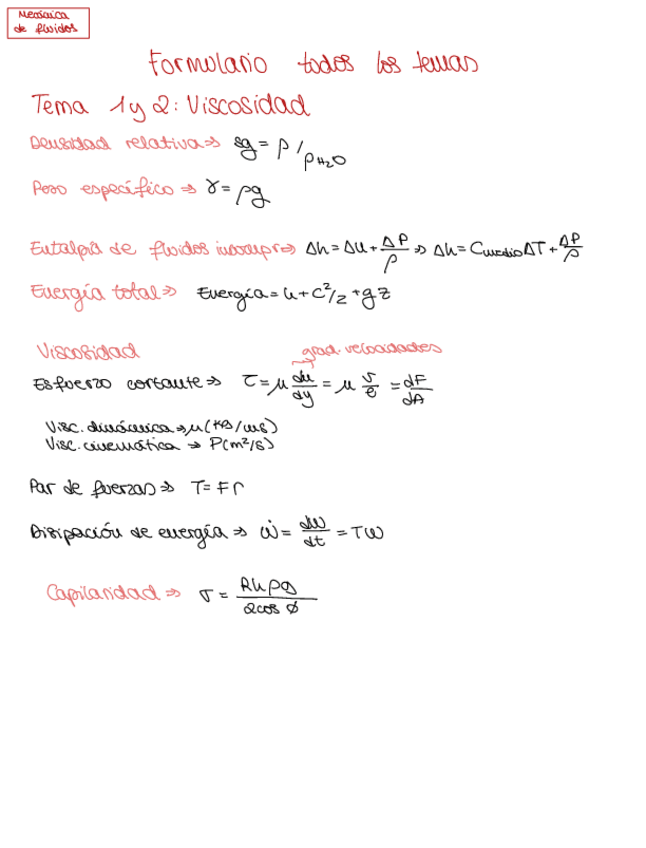 Mecánica
de fluidos
Formulario todos los temas
Tema 1 y 2: Viscosidad
Densidad relativa ⇒ sg = ρ / ρH₂O
Peso específico ⇒ γ = ρg
Entalpía de fluidos incompr ⇒ Δh = Δu + ΔP/ρ ⇒ Δh = Cmedio ΔT + ΔP/ρ
Energía total ⇒ Energía = u + c²/2 + gz
Viscosidad
grad. velocidades
Esfuerzo cortante ⇒ τ = μ du/dy = μ v/e = dF/dA
Visc. dinámica ⇒ μ (kg/ms)
Visc. cinemática ⇒ P (m²/s)
Par de fuerzas ⇒ T = Fr
Disipación de energía ⇒ ẇ = dw/dt = Tω
Capilaridad ⇒ σ = Rhρg / 2cos ϕ